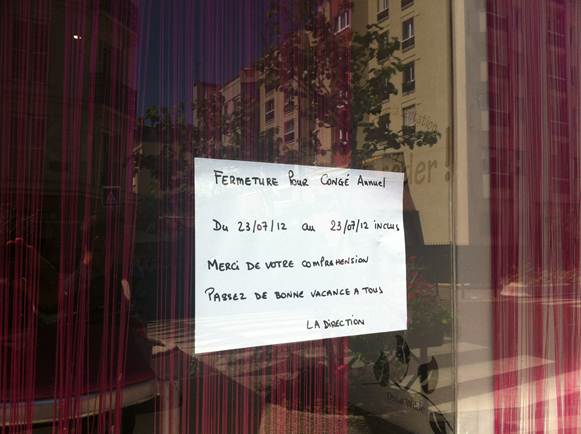 FERMETURE POUR CONGÉ ANNUEL
DU 23/07/12 au 23/07/12 INCLUS
MERCI DE VOTRE COMPREHENSION
PASSEZ DE BONNE VACANCE A TOUS
LA DIRECTION